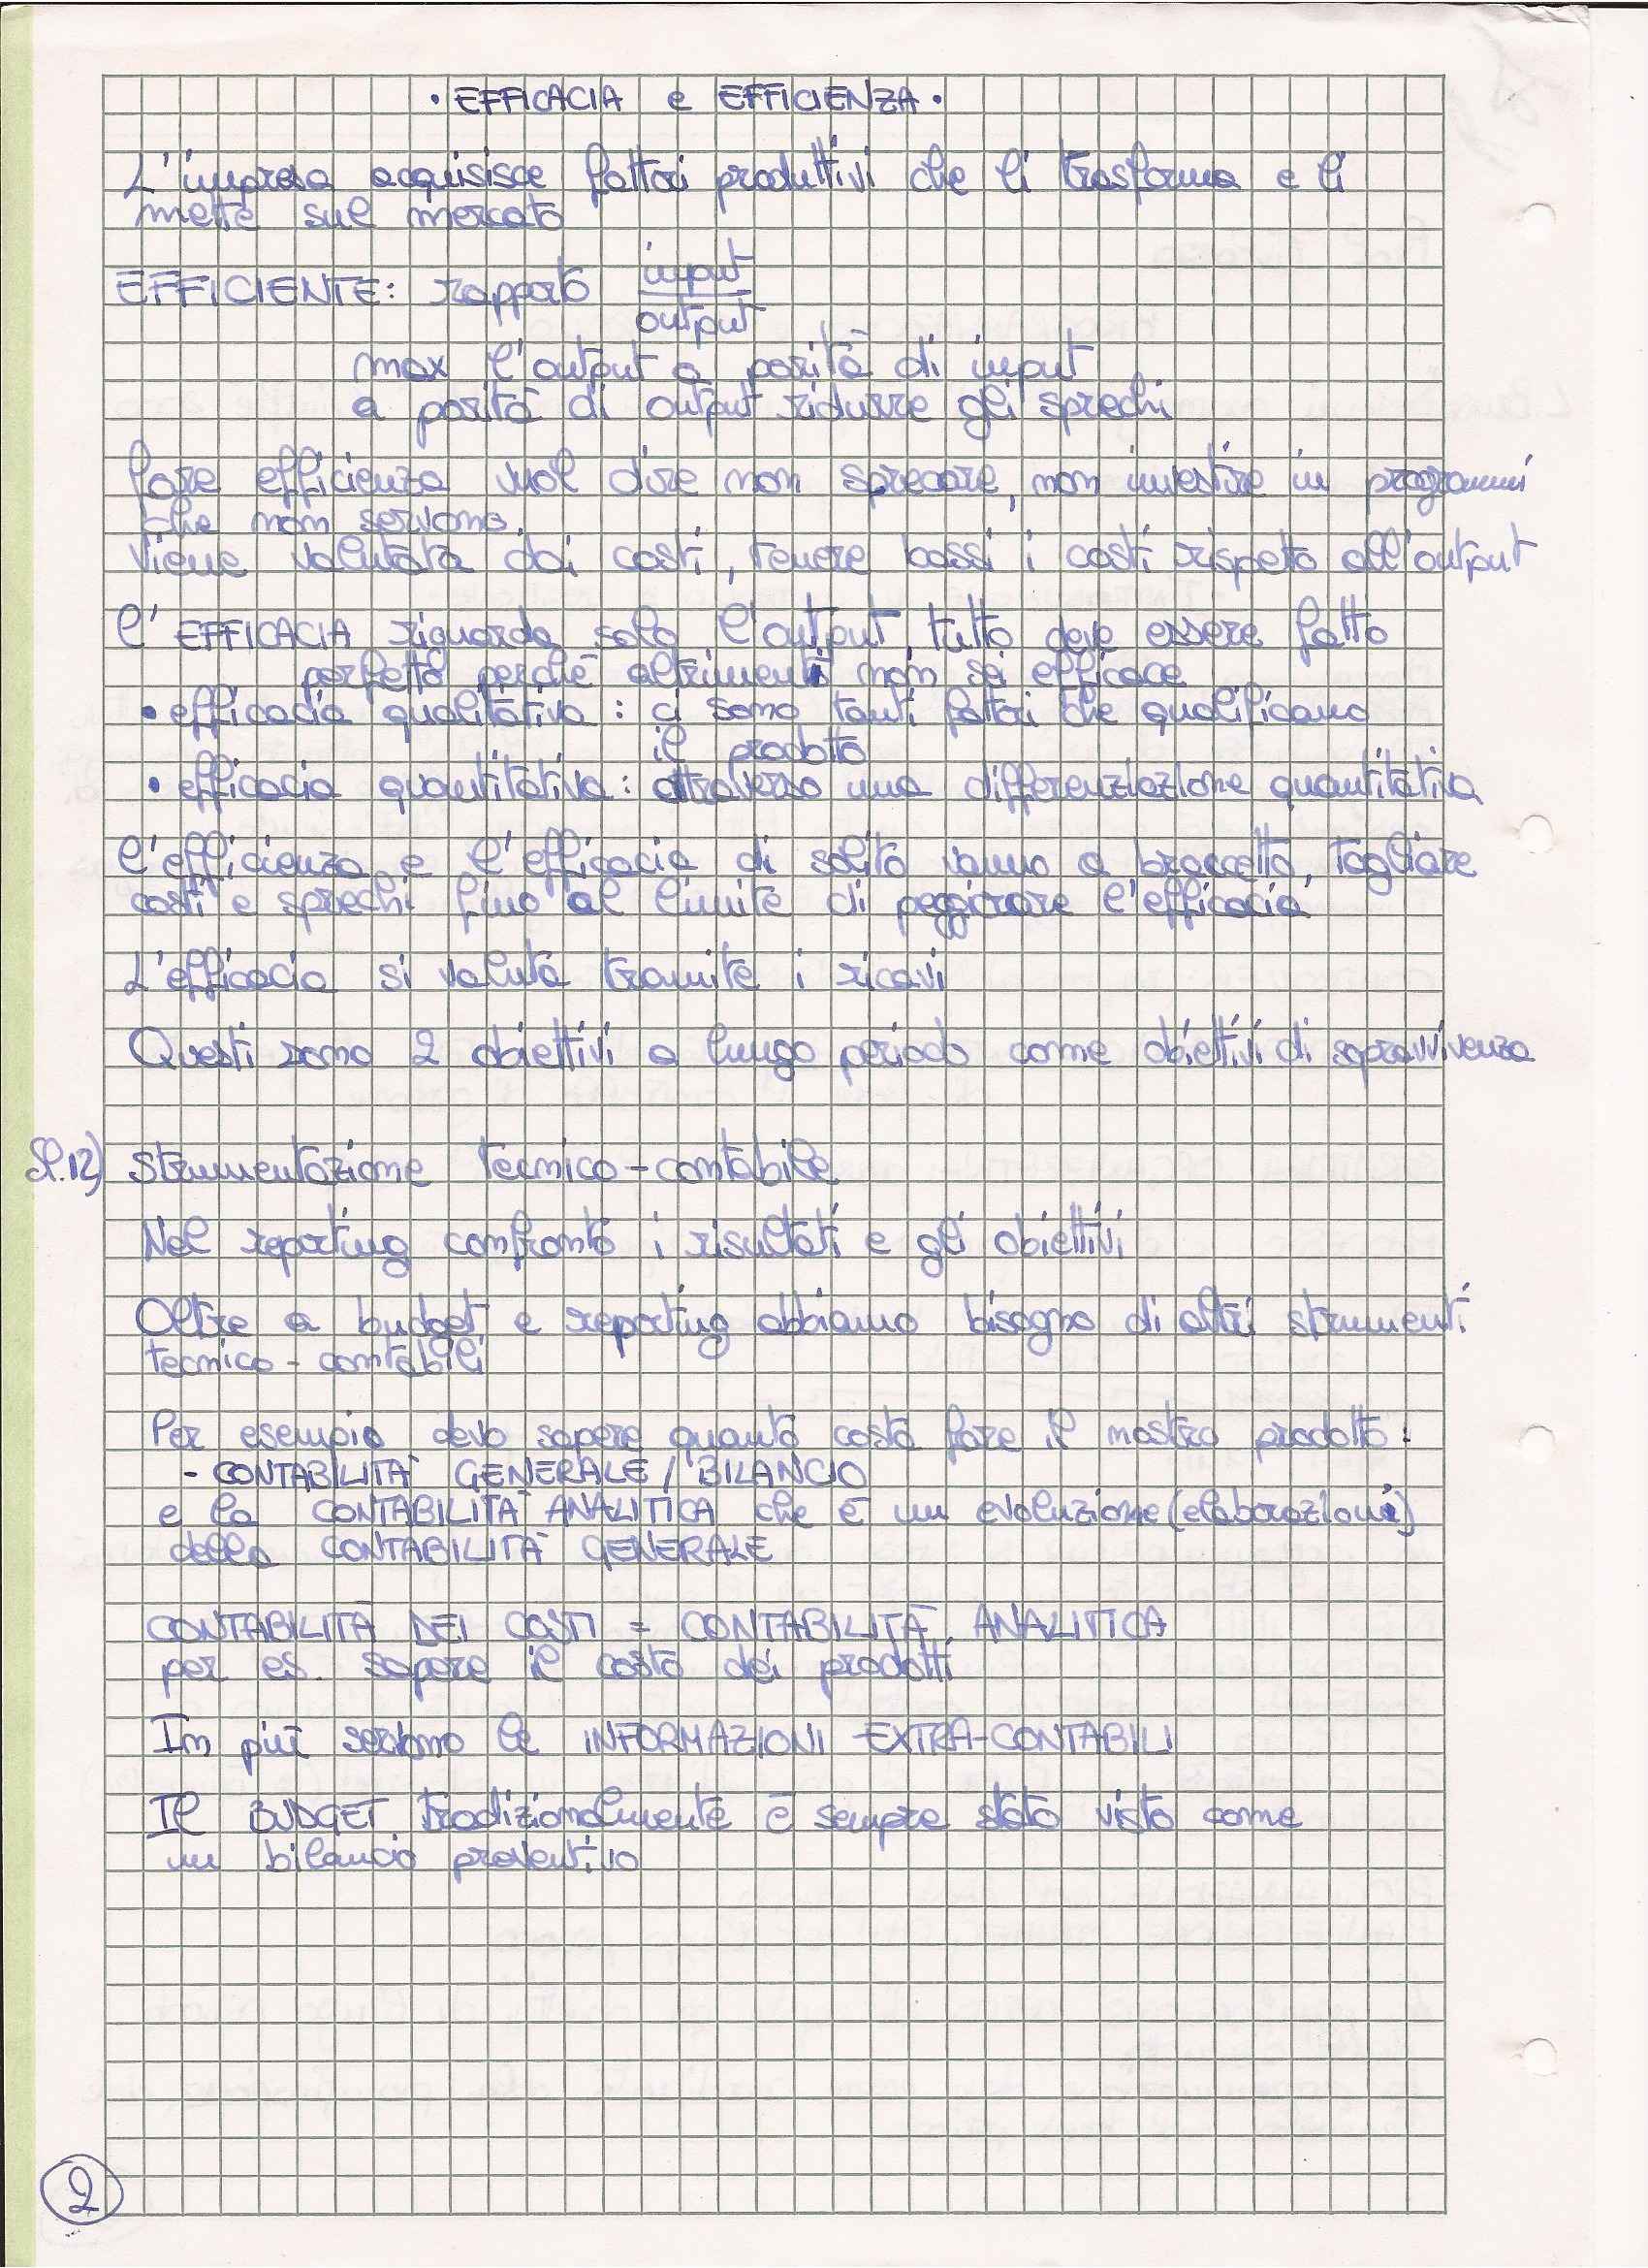 • EFFICACIA e EFFICIENZA •
L'impresa acquisisce fattori produttivi che li trasforma e li
mette sul mercato
EFFICIENTE: rapporto input
output
max l'output a parità di input
a parità di output ridurre gli sprechi
fare efficienza vuol dire non sprecare, non investire in programmi
che non servono.
Viene valutata dai costi, tenere bassi i costi rispetto all'output
l'EFFICACIA riguarda solo l'output, tutto deve essere fatto
perfetto perchè altrimenti non sei efficace
• efficacia qualitativa: ci sono tanti fattori che qualificano
il prodotto
• efficacia quantitativa: attraverso una differenziazione quantitativa
l'efficienza e l'efficacia di solito vanno a braccetto, tagliare
costi e sprechi fino al limite di peggiorare l'efficacia
L'efficacia si valuta tramite i ricavi
Questi sono 2 obiettivi a lungo periodo come obiettivi di sopravvivenza
Sl.12) Strumentazione tecnico-contabile
Nel reporting confronto i risultati e gli obiettivi
Oltre a budget e reporting abbiamo bisogno di altri strumenti
tecnico-contabili
Per esempio devo sapere quanto costa fare il nostro prodotto:
- CONTABILITA' GENERALE / BILANCIO
e la CONTABILITA' ANALITICA che è un evoluzione (elaborazioni)
della CONTABILITA' GENERALE
CONTABILITÀ DEI COSTI = CONTABILITÀ ANALITICA
per es. sapere il costo dei prodotti
In più servono le INFORMAZIONI EXTRA-CONTABILI
Il BUDGET tradizionalmente è sempre stato visto come
un bilancio preventivo
2